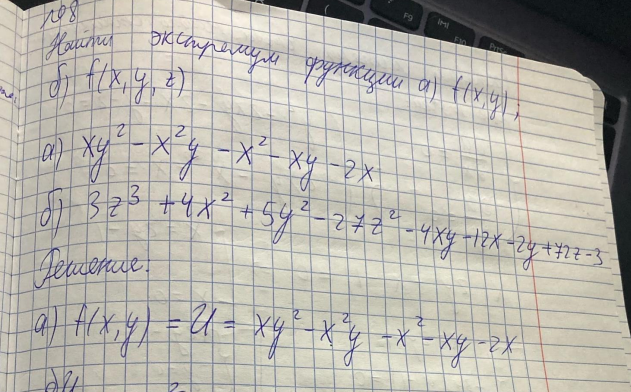 №8
Найти экстремум функции а) f(x,y);
б) f(x,y,z)
а) xy² - x²y - x² - xy - 2x
б) 3z³ + 4x² + 5y² - 27z² - 4xy - 12x - 2y + 72z - 3
Решение.
а) f(x,y) = U = xy² - x²y - x² - xy - 2x